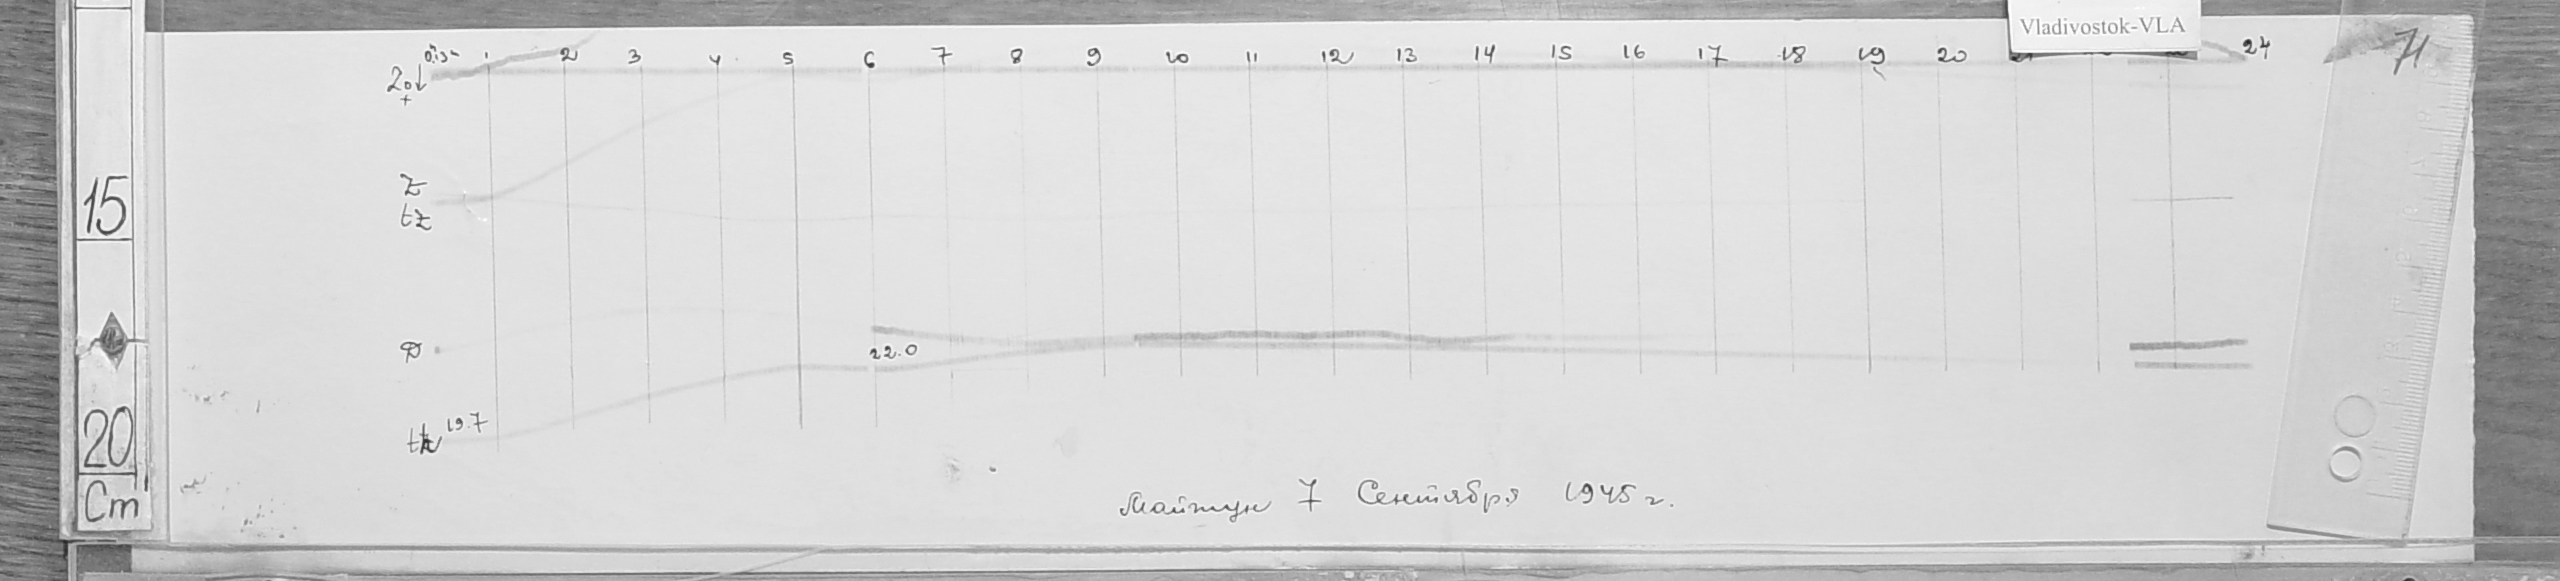 Vladivostok-VLA
71
0,13 1 2 3 4 5 6 7 8 9 10 11 12 13 14 15 16 17 18 19 20 24
20↓
+
15
Z
tz
D
22.0
19.7
th
20
Cm
Майтун 7 Сентября 1945 г.